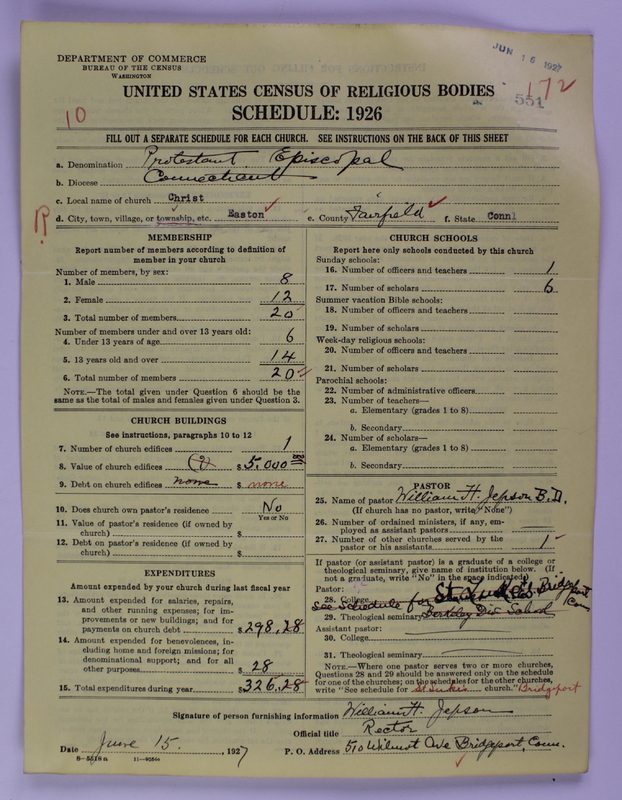 JUN 16 1927
DEPARTMENT OF COMMERCE
BUREAU OF THE CENSUS
WASHINGTON
172
551
UNITED STATES CENSUS OF RELIGIOUS BODIES
SCHEDULE: 1926
10
FILL OUT A SEPARATE SCHEDULE FOR EACH CHURCH. SEE INSTRUCTIONS ON THE BACK OF THIS SHEET
a. Denomination Protestant Episcopal
b. Diocese Connecticut
c. Local name of church Christ
d. City, town, village, or township, etc. Easton e. County Fairfield f. State Conn
R
MEMBERSHIP
Report number of members according to definition of
member in your church
Number of members, by sex:
1. Male 8
2. Female 12
3. Total number of members 20
Number of members under and over 13 years old:
4. Under 13 years of age 6
5. 13 years old and over 14
6. Total number of members 20
NOTE.—The total given under Question 6 should be the
same as the total of males and females given under Question 3.
CHURCH BUILDINGS
See instructions, paragraphs 10 to 12
7. Number of church edifices 1
8. Value of church edifices (2) $5,000
9. Debt on church edifices none $ none
10. Does church own pastor's residence No
Yes or No
11. Value of pastor's residence (if owned by
church) $
12. Debt on pastor's residence (if owned by
church) $
EXPENDITURES
Amount expended by your church during last fiscal year
13. Amount expended for salaries, repairs,
and other running expenses; for im-
provements or new buildings; and for
payments on church debt $298.28
14. Amount expended for benevolences, in-
cluding home and foreign missions; for
denominational support; and for all
other purposes $28
15. Total expenditures during year $326.28
CHURCH SCHOOLS
Report here only schools conducted by this church
Sunday schools:
16. Number of officers and teachers 1
17. Number of scholars 6
Summer vacation Bible schools:
18. Number of officers and teachers
19. Number of scholars
Week-day religious schools:
20. Number of officers and teachers
21. Number of scholars
Parochial schools:
22. Number of administrative officers
23. Number of teachers—
a. Elementary (grades 1 to 8)
b. Secondary
24. Number of scholars—
a. Elementary (grades 1 to 8)
b. Secondary
PASTOR
25. Name of pastor William H. Jepson B.D.
(If church has no pastor, write "None")
26. Number of ordained ministers, if any, em-
ployed as assistant pastors
27. Number of other churches served by the
pastor or his assistants 1
If pastor (or assistant pastor) is a graduate of a college or
theological seminary, give name of institution below. (If
not a graduate, write "No" in the space indicated)
Pastor:
28. College
See Schedule for St. Luke's Bridgeport Conn
29. Theological seminary Berkeley Div School
Assistant pastor:
30. College
31. Theological seminary
NOTE.—Where one pastor serves two or more churches,
Questions 28 and 29 should be answered only on the schedule
for one of the churches; on the schedules for the other churches,
write "See schedule for St Lukes church." Bridgeport
Signature of person furnishing information William H. Jepson
Official title Rector
Date June 15, 1927 P. O. Address 510 Wilmot Ave Bridgeport, Conn.
8-5518a 11-9056